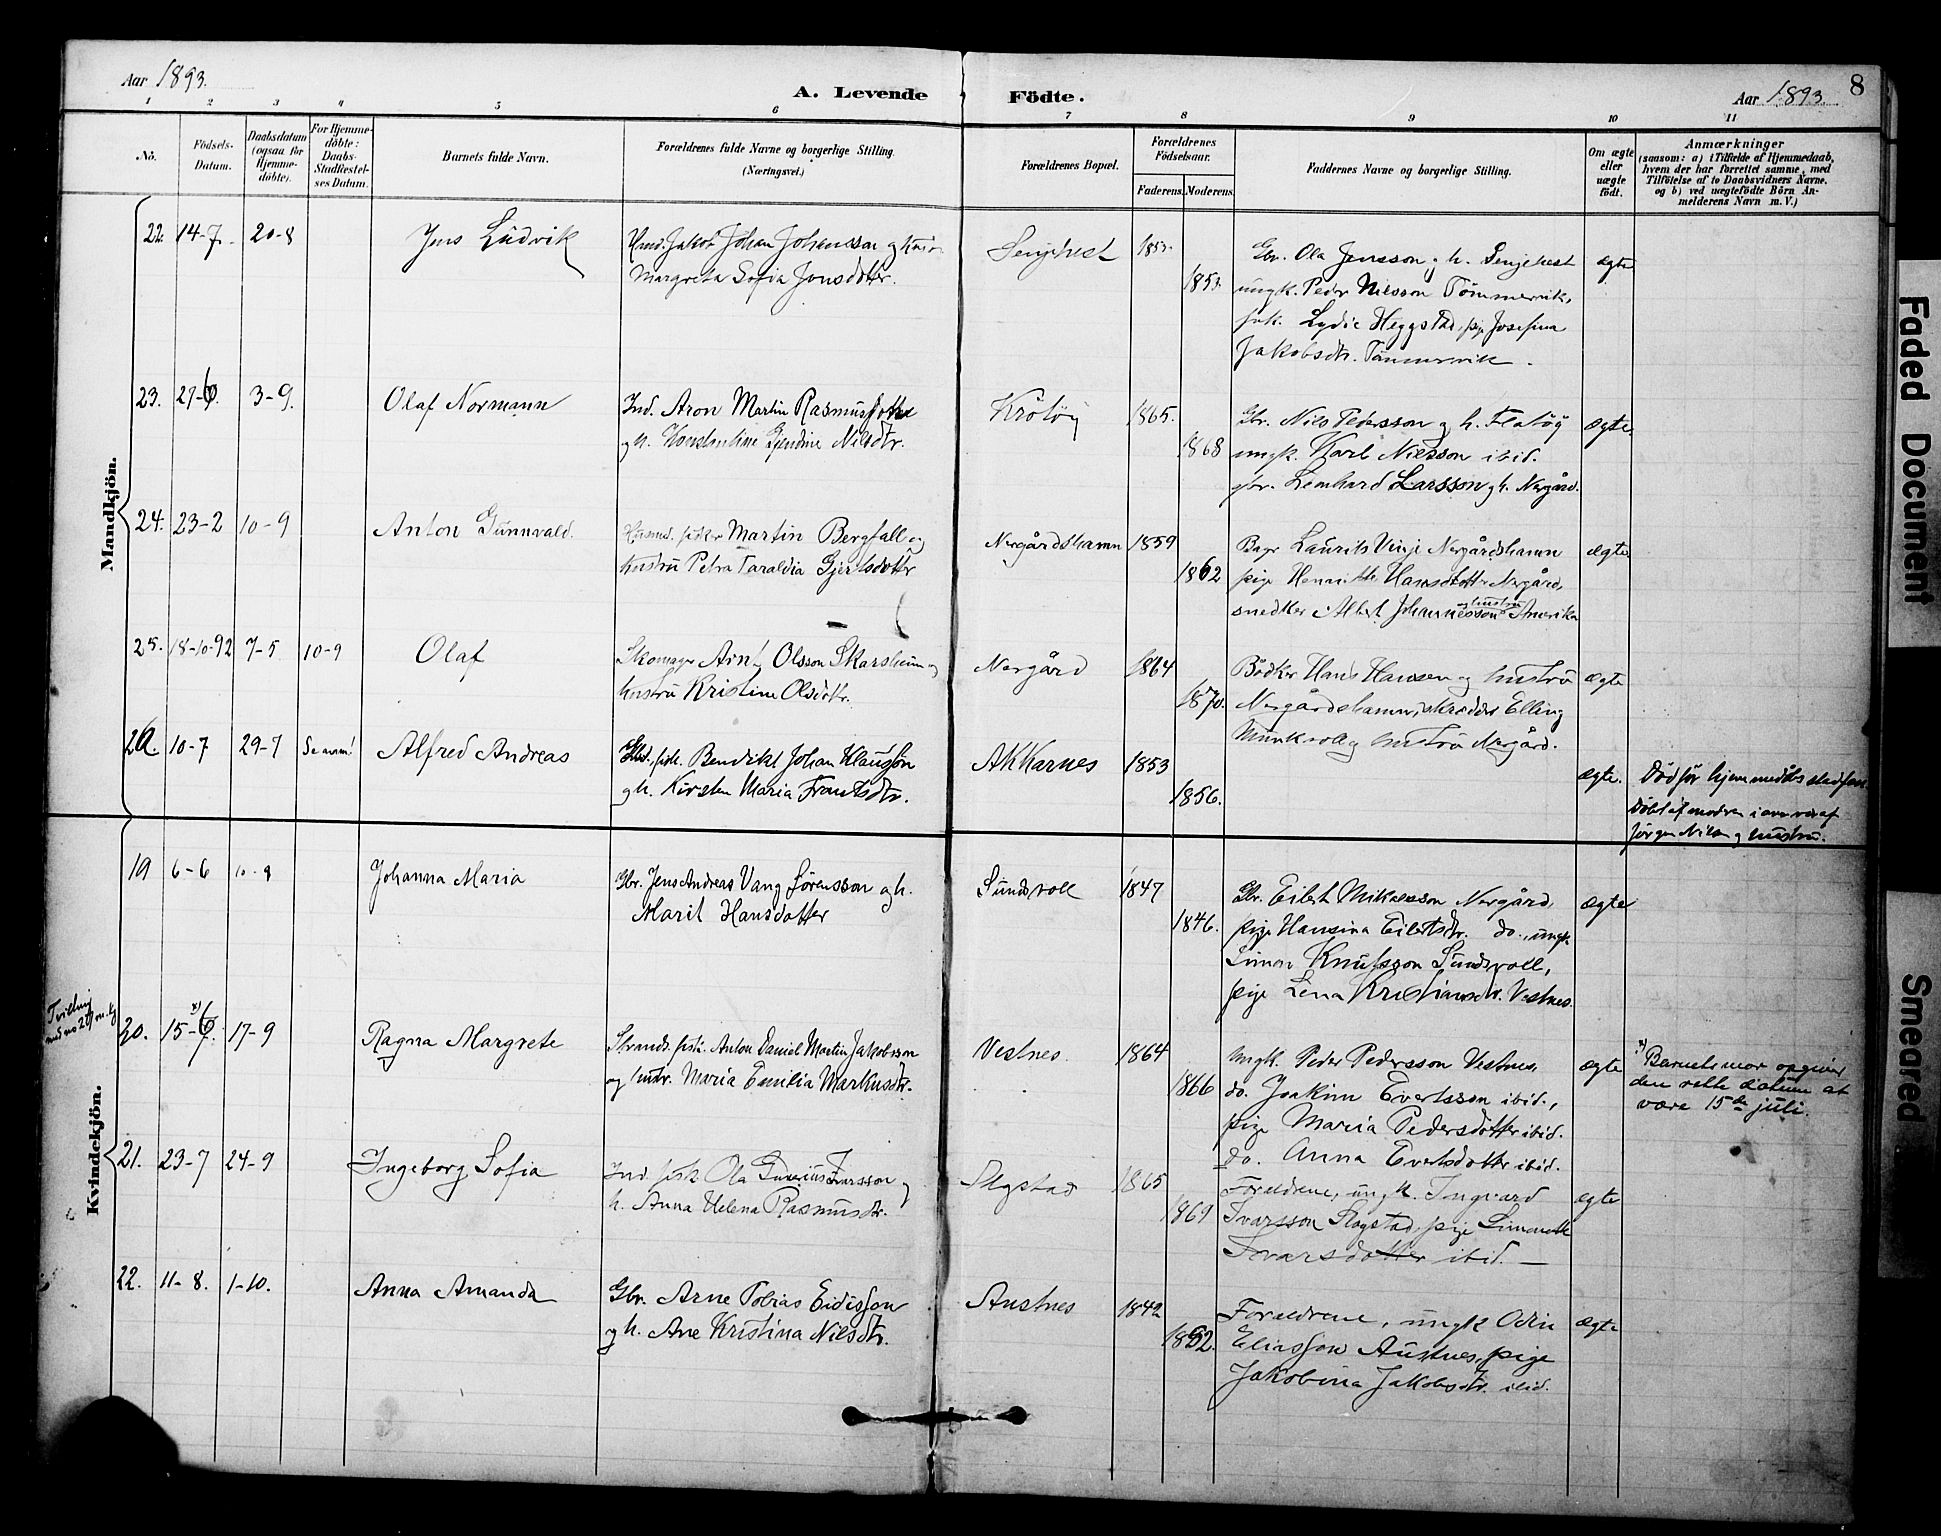 Aar 1893.
A. Levende Födte.
Aar 1893.
8
1 2 3 4 5 6 7 8 9 10 11
No.
Födsels-Datum.
Daabsdatum (ogsaa for Hjemme-döbte).
For Hjemme-döbte: Daabs-Stadfæstel-ses Datum.
Barnets fulde Navn.
Forældrenes fulde Navne og borgerlige Stilling. (Næringsvei.)
Forældrenes Bopæl.
Forældrenes Födselsaar.
Faderens. Moderens.
Faddernes Navne og borgerlige Stilling.
Om ægte eller uægte födt.
Anmærkninger
(saasom: a) i Tilfælde af Hjemmedaab,
hvem der har forrettet samme, med
Tilföielse af to Daabsvidners Navne,
og b) ved uægtefödte Börn An-
melderens Navn m. V.)
Mandkjön.
22. 14-7. 20-8 Jens Ludvik
Jakob Johan Johansson og
Margreta Sofia Jonsdotter.
Senjehest 1853. 1853.
Gbr. Ola Jensson og h. Senjehest
ungk. Peder Nilsson Tömmervik,
Lydie Heggstad, pige Josefina
Jakobsdtr. Tömmervik.
ægte
23. 27-6. 3-9. Olaf Normann
Ind. Aron Martin
og h. Konstantine Gjendine Nilsdtr.
Kråköy 1865. 1868
Gbr. Nils Pedersson og h. Flatöy
ungk. Karl Nilsson ibid.
gbr. Lenhard Larsson og h. Nergård.
ægte.
24. 23-2 10-9 Anton Gunnvald.
Husmd. fisker Martin Bergfall og
hustru Petra Taraldia Gjertsdotter
Nergårdshamn 1859 1862
Laurits Vinje Nergårdshamn
pige Henrikke Hansdotter Nergård,
snedker Albert Johannesson og hustru Amerika
ægte
25. 18-10-92 7-5 10-9 Olaf
Skomager Arnt Olsson Skarsheim og
hustru Kristine Olsdotr.
Nergård 1864 1870.
Bödker Hans Hansen og hustru
Nergårdshamn, skrædder Elling
Munkvoll og hustru Nergård.
ægte
26. 10-7 29-7 Se anm! Alfred Andreas
fisk. Bendikt Johan Klausson
og h. Kirsten Maria Frantsdtr.
Akkarnes 1853 1856.
ægte.
Död för hjemmedåbs stadfæst.
Döbt af modren i nærvær af
Jörgen Nilsen og hustru.
Kvindekjön.
19 6-6 Johanna Maria
Gbr. Jens Andreas Vang Sörensson og h.
Marit Hansdotter
Sundsvoll 1847 1846.
Gbr. Eilert Mikalsson Nergård,
pige Hansina Eilertsdtr. do., ungk.
Simon Knutsson Sundsvoll,
pige Lena Kristiansdtr. Vestnes.
ægte
Tvilling
med no 27 m.kj
20. 15-6/7. x) 17-9 Ragna Margrete
Strands. fisk. Anton Daniel Martin Jakobsson
og hustr. Maria Emilia Markusdtr.
Vestnes. 1864 1866
Ungk. Peder Pedersson Vestnes,
do. Joakim Evertsson ibid.,
pige Maria Pedersdotter ibid.
do. Anna Evertsdotter ibid.
ægte
x) Barnets mor opgiver
den rette datum at
være 15de juli.
21. 23-7 24-9 Ingeborg Sofia
Ind. fisk Ola Ivarsson og
h. Anna Helena Rasmusdtr.
Slogstad 1865 1869
Foreldrene, ungk. Ingvard
Ivarsson Slogstad, pige
Ivarsdotter ibid. —
ægte
22. 11-8. 1-10. Anna Amanda
Gbr. Arne Tobias Eidisson
og h. Ane Kristina Nilsdtr.
Austnes 1842 1852.
Foreldrene, ungk Odin
Eliasson Austnes, pige
Jakobina Jakobsdtr. ibid.
ægte
Faded Document
Smeared